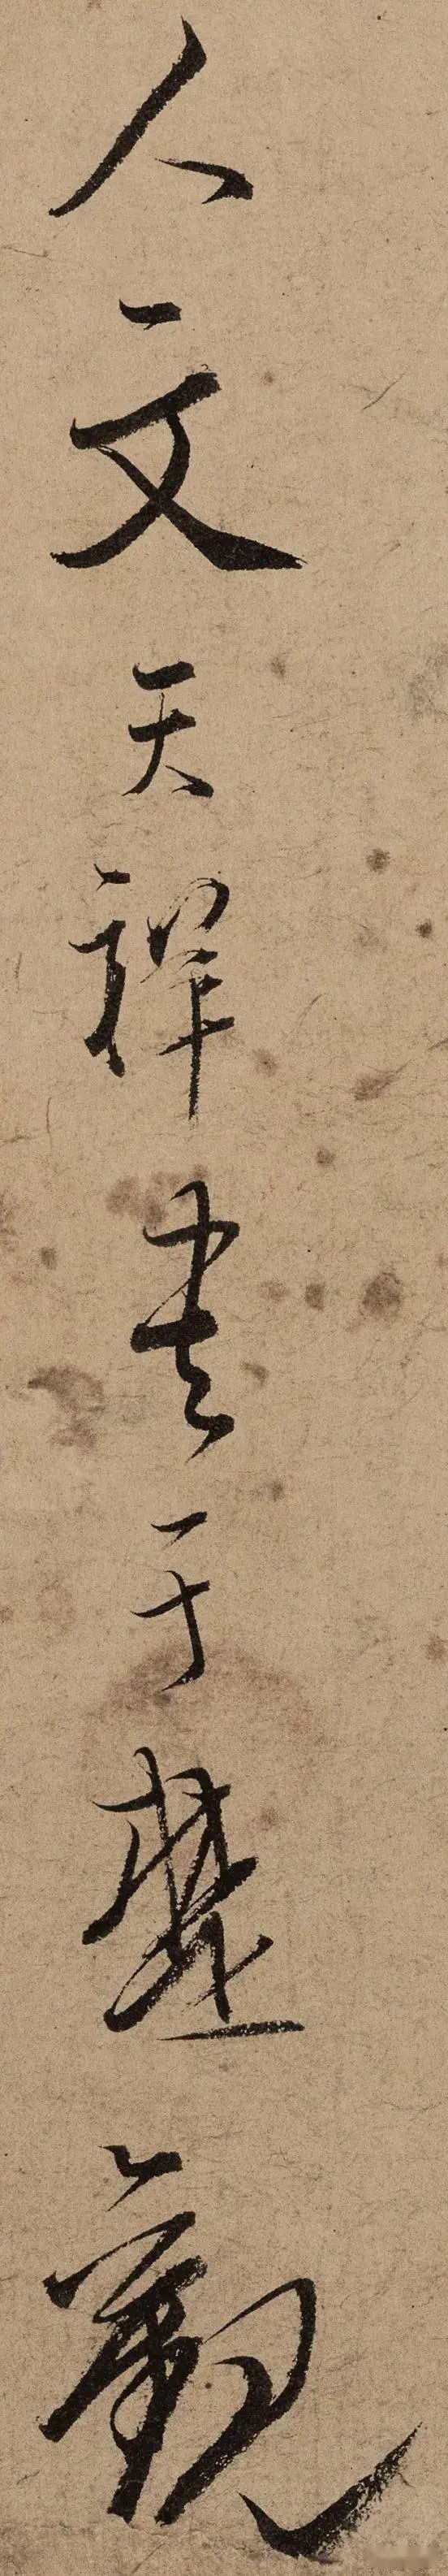 人文天祥書于楚觀